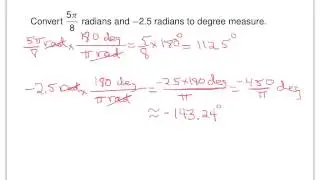 Convert 5π/8 radians and −2.5 radians to degree measure.
5π/8 rad × 180 deg/π rad = 5/8 × 180° = 112.5°
−2.5 rad × 180 deg/π rad = −2.5×180 deg/π = −450/π deg
≈ −143.24°